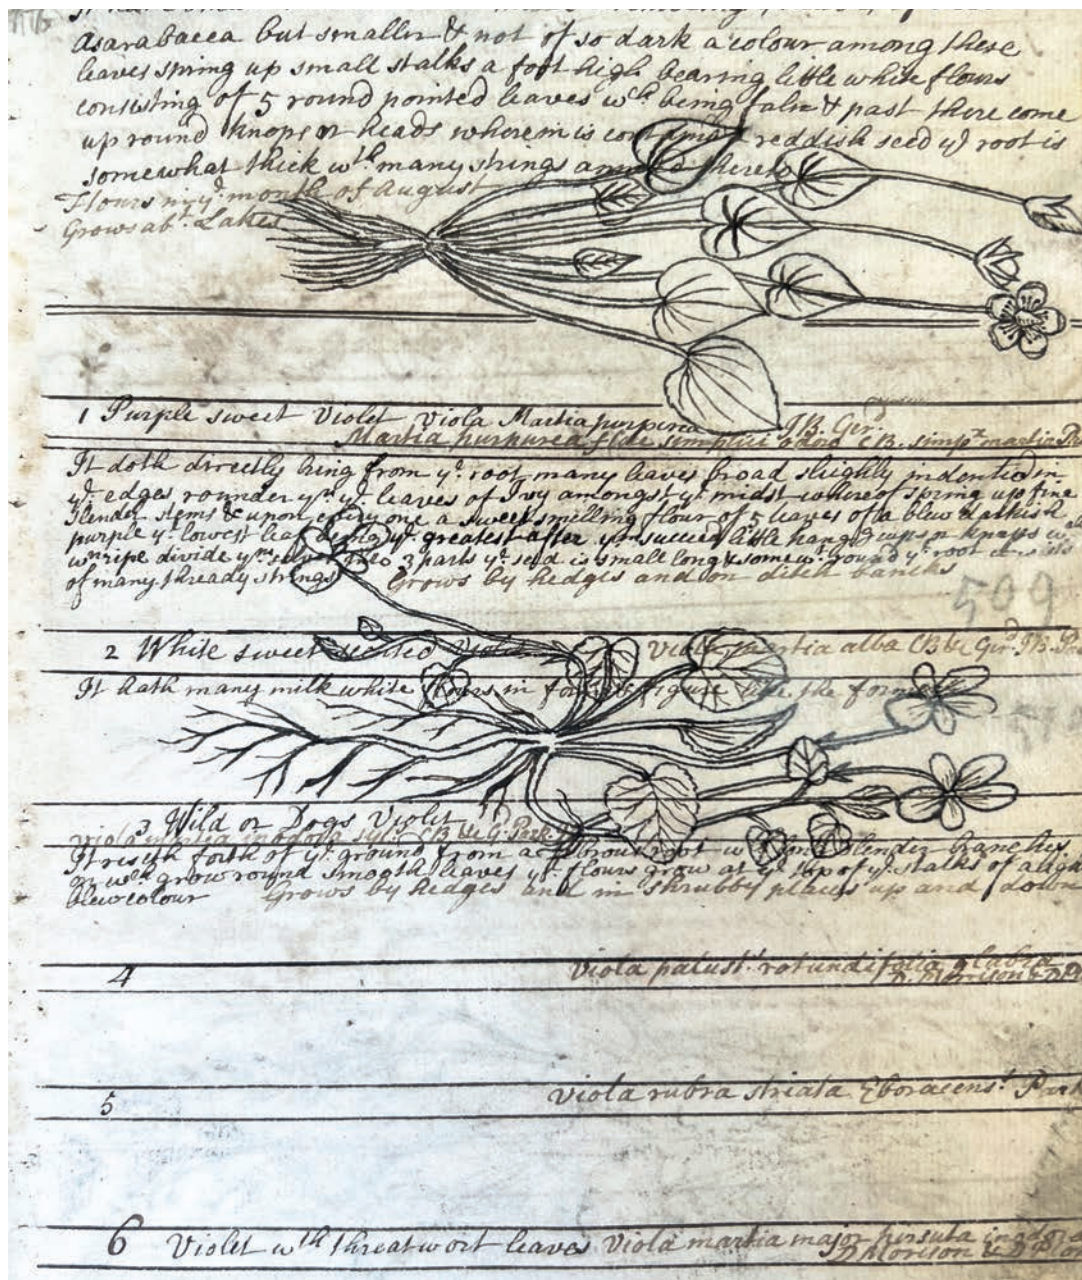 Asarabacca but smaller & not of so dark a colour among these
leaves spring up small stalks a foot high bearing little white flours
consisting of 5 round pointed leaves wch being faln & past there come
up round knops or heads wherein is reddish seed ye root is
somewhat thick wth many strings thereto
Flours in ye month of August
Grows abt Lakes
1 Purple sweet Violet Viola Martia purpurea IB. Ger.
Martia purpurea flore simplici odoro CB. simpx martia
It doth directly bring from ye root many leaves broad sleighly indented in
ye edges rounder yn ye leaves of Ivy amongst ye midst whereof spring up fine
slender stems & upon every one a sweet smelling flour of 5 leaves of a blew darkish
purple ye lowest being ye greatest after ym succeed little hang cups or knaps
wn ripe divide into 3 parts ye seed is small long & somewt round ye root
of many thready strings Grows by hedges and on ditch bancks
509
2 White sweet scented Violet Viola martia alba CB & Ger IB.
It hath many milk white flours in form & figure like the former
3 Wild or Dogs Violet
Viola martia inodora syl. CB & G. Park
It riseth forth of ye ground from a root slender branches
on wch grow round smooth leaves ye flours grow at ye top of ye stalks of a
blew colour Grows by hedges and in shrubby places up and down
4 Viola palust. rotundifolia glabra
D. Morison &
5 Viola rubra striata Eboracens.
6 Violet wth threatwort leaves Viola martia major hirsuta inodora
D Morison &